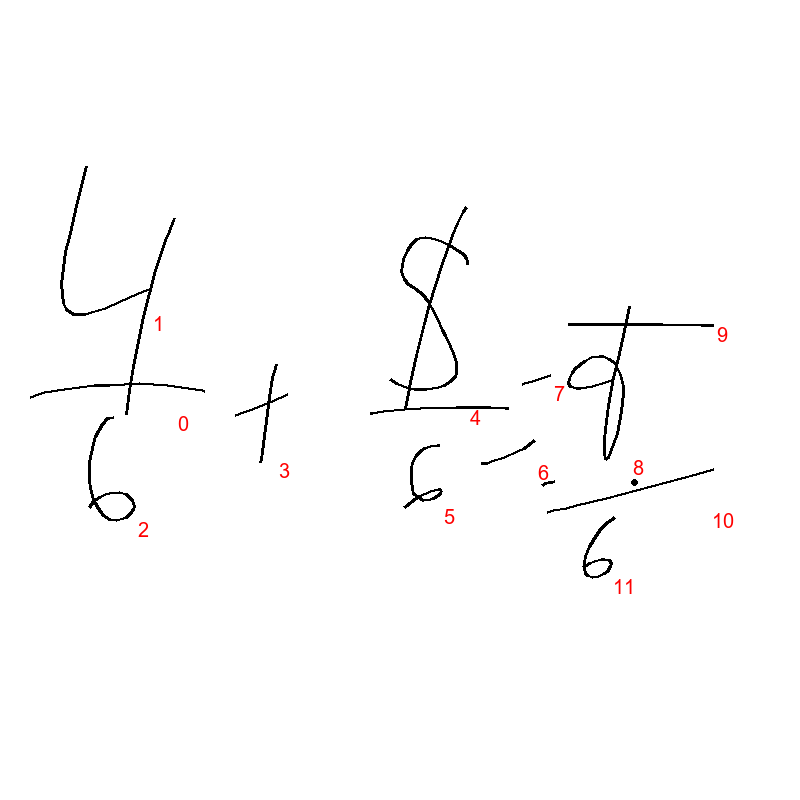 4/6 + $/6 = 9/6
0
1
2
3
4
5
6
7
8
9
10
11